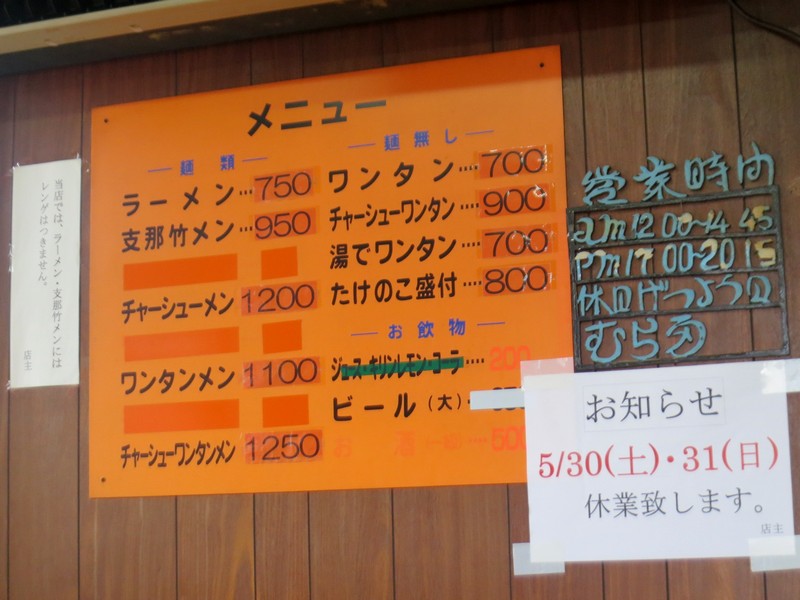 メニュー
麺類
ラーメン…750
支那竹メン…950
チャーシューメン 1200
ワンタンメン 1100
チャーシューワンタンメン 1250
麺無し
ワンタン…700
チャーシューワンタン…900
湯でワンタン…700
たけのこ盛付…800
お飲物
ジュース・キリンレモン・コーラ…200
ビール(大)
お酒 500
当店では、ラーメン・支那竹メンには
レンゲはつきません。
店主
営業時間
am12 00-14 45
Pm17 00-20 15
休日げつようび
むら田
お知らせ
5/30(土)・31(日)
休業致します。
店主